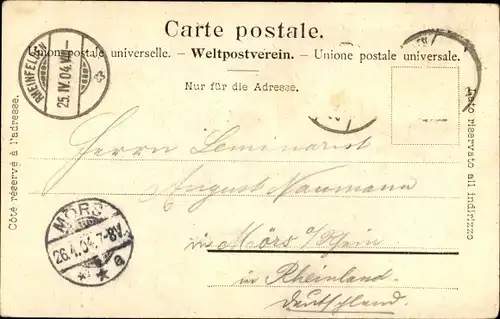 Carte postale.
Union postale universelle. – Weltpostverein. – Unione postale universale.
Nur für die Adresse.
Côté réservé à l'adresse.
Lato riservato all indirizzo
RHEINFELDEN
25.IV.04.VII
Herrn Seminarist
August Naumann
in Mörs a/Rhein
in Rheinland
Deutschland.
MÖRS
26.4.04.7-8V.
* * a